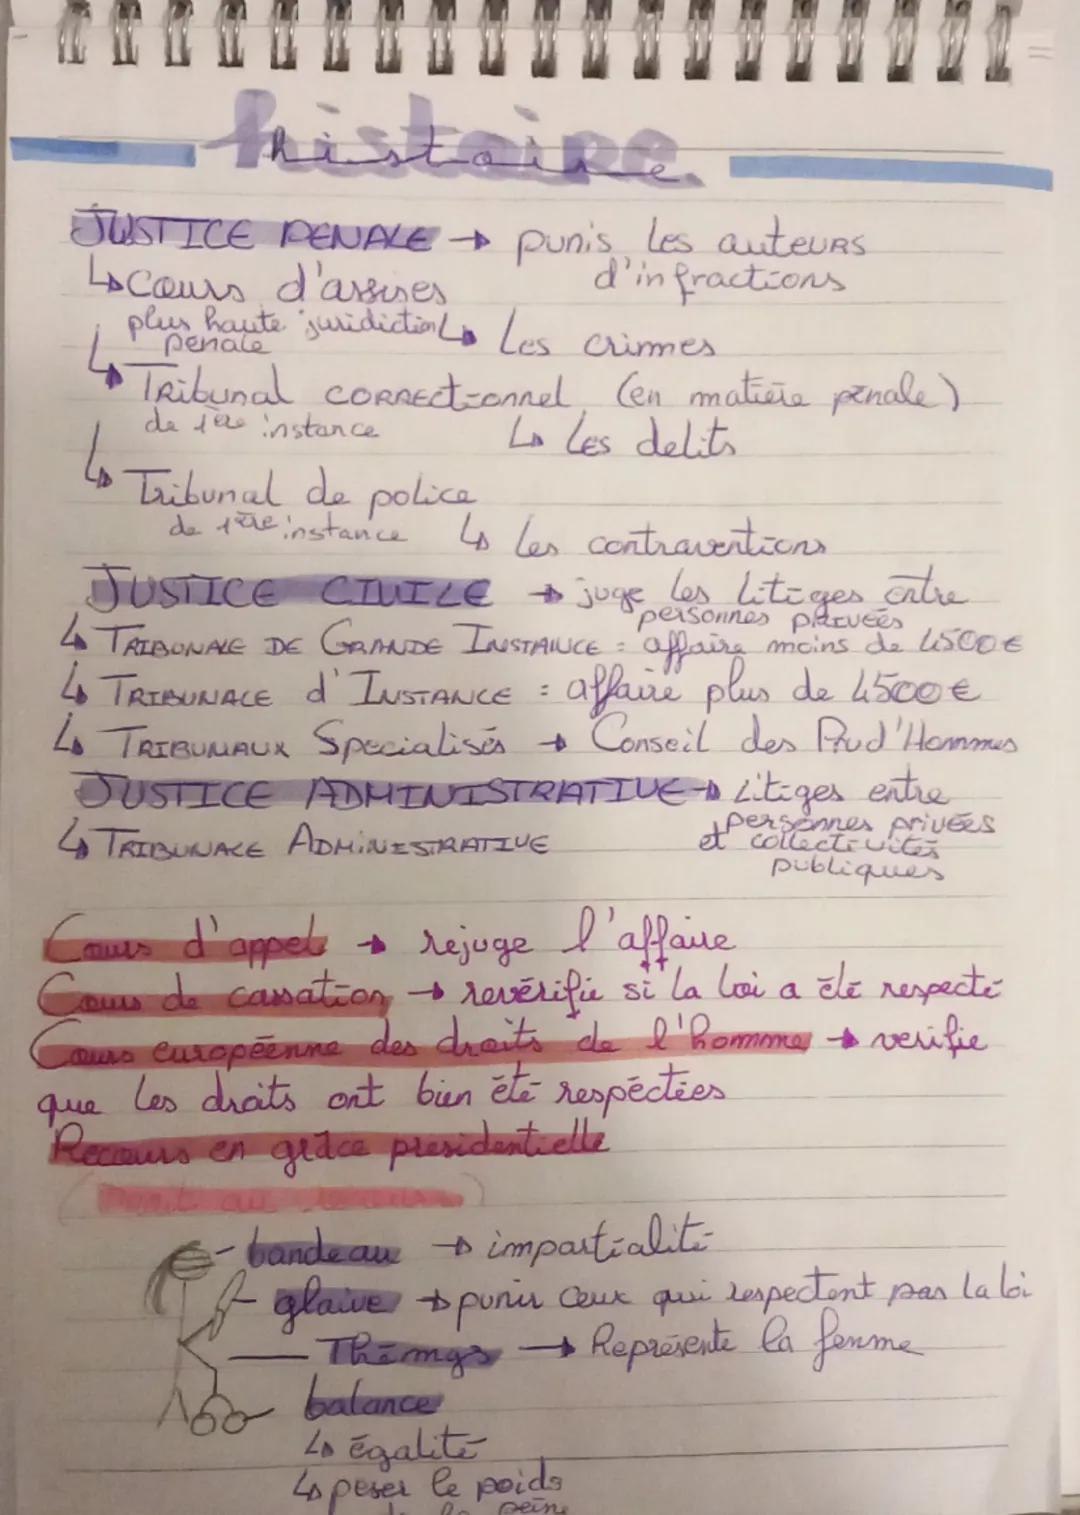 histoire
JUSTICE PENALE → punis les auteurs
d'infractions
↳ Cours d'assises
plus haute juridiction ↳ Les crimes
penale
↳ Tribunal correctionnel (en matière pénale)
de 1ère instance ↳ Les delits
↳ Tribunal de police
de 1ère instance ↳ Les contraventions
JUSTICE CIVILE → juge les litiges entre
personnes privées
↳ TRIBUNALE DE GRANDE INSTANCE = affaire moins de 4500€
↳ TRIBUNALE d'INSTANCE = affaire plus de 4500€
↳ TRIBUNAUX Spécialisés → Conseil des Prud'Hommes
JUSTICE ADMINISTRATIVE → Litiges entre
personnes privées
↳ TRIBUNALE ADMINISTRATIVE et collectivités
publiques
Cours d'appel → rejuge l'affaire
Cours de cassation → revérifie si la loi a été respecté
Cours européenne des droits de l'homme → verifie
que les droits ont bien été respéctées
Recours en grâce presidentielle
bandeau → impartialité
glaive → punir ceux qui respectent pas la loi
Thémys → Représente la femme
balance
↳ égalité
↳ peser le poids
de la peine